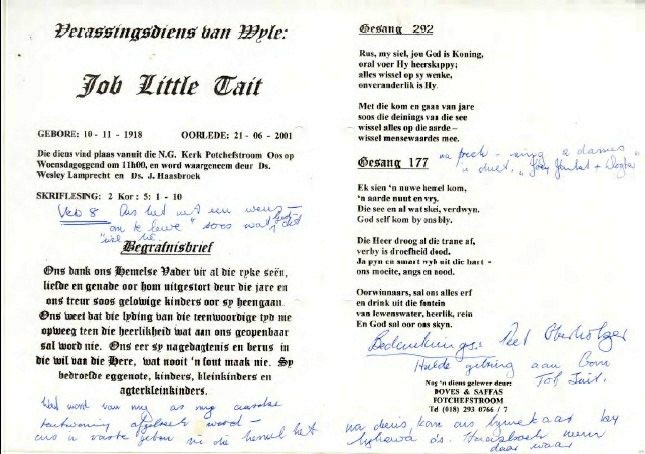 Verassingsdiens van Wyle:
Job Little Tait
GEBORE: 10 - 11 - 1918 OORLEDE: 21 - 06 - 2001
Die diens vind plaas vanuit die N.G. Kerk Potchefstroom Oos op
Woensdagoggend om 11h00, en word waargeneem deur Ds.
Wesley Lamprecht en Ds. J. Haasbroek
SKRIFLESING: 2 Kor : 5: 1 - 10
Vers 8 Ons het net een wens -
om te lewe soos wat
wil hê
Begrafnisbrief
Ons dank ons Hemelse Vader vir al die ryke seën,
liefde en genade oor hom uitgestort deur die jare en
ons treur soos gelowige kinders oor sy heengaan.
Ons weet dat die lyding van die teenwoordige tyd nie
opweeg teen die heerlikheid wat aan ons geopenbaar
sal word nie. Ons eer sy nagedagtenis en berus in
die wil van die Here, wat nooit 'n fout maak nie. Sy
bedroefde eggenote, kinders, kleinkinders en
agterkleinkinders.
word van my as my aardse
tentwoning afgebreek word -
ons 'n vaste gebou in die hemel het
Gesang 292
Rus, my siel, jou God is Koning,
oral voer Hy heerskappy;
alles wissel op sy wenke,
onveranderlik is Hy.
Met die kom en gaan van jare
soos die deinings van die see
wissel alles op die aarde –
wissel mensewaardes mee.
na preek - sing 2 dames
duet.
Gesang 177
Ek sien 'n nuwe hemel kom,
'n aarde nuut en vry.
Die see en al wat skei, verdwyn.
God self kom by ons bly.
Die Heer droog al die trane af,
verby is droefheid dood.
Ja pyn en smart wyk uit die hart -
ons moeite, angs en nood.
Oorwinnaars, sal ons alles erf
en drink uit die fontein
van lewenswater, heerlik, rein
En God sal oor ons skyn.
Bedankings: Piet Oberholzer
Hulde gebring aan Oom
Job Tait.
Nog 'n diens gelewer deur:
DOVES & SAFFAS
POTCHEFSTROOM
Tel (018) 293 0766 / 7
na diens, kan ons bymekaar
ds. Haasbroek neem
daar waar